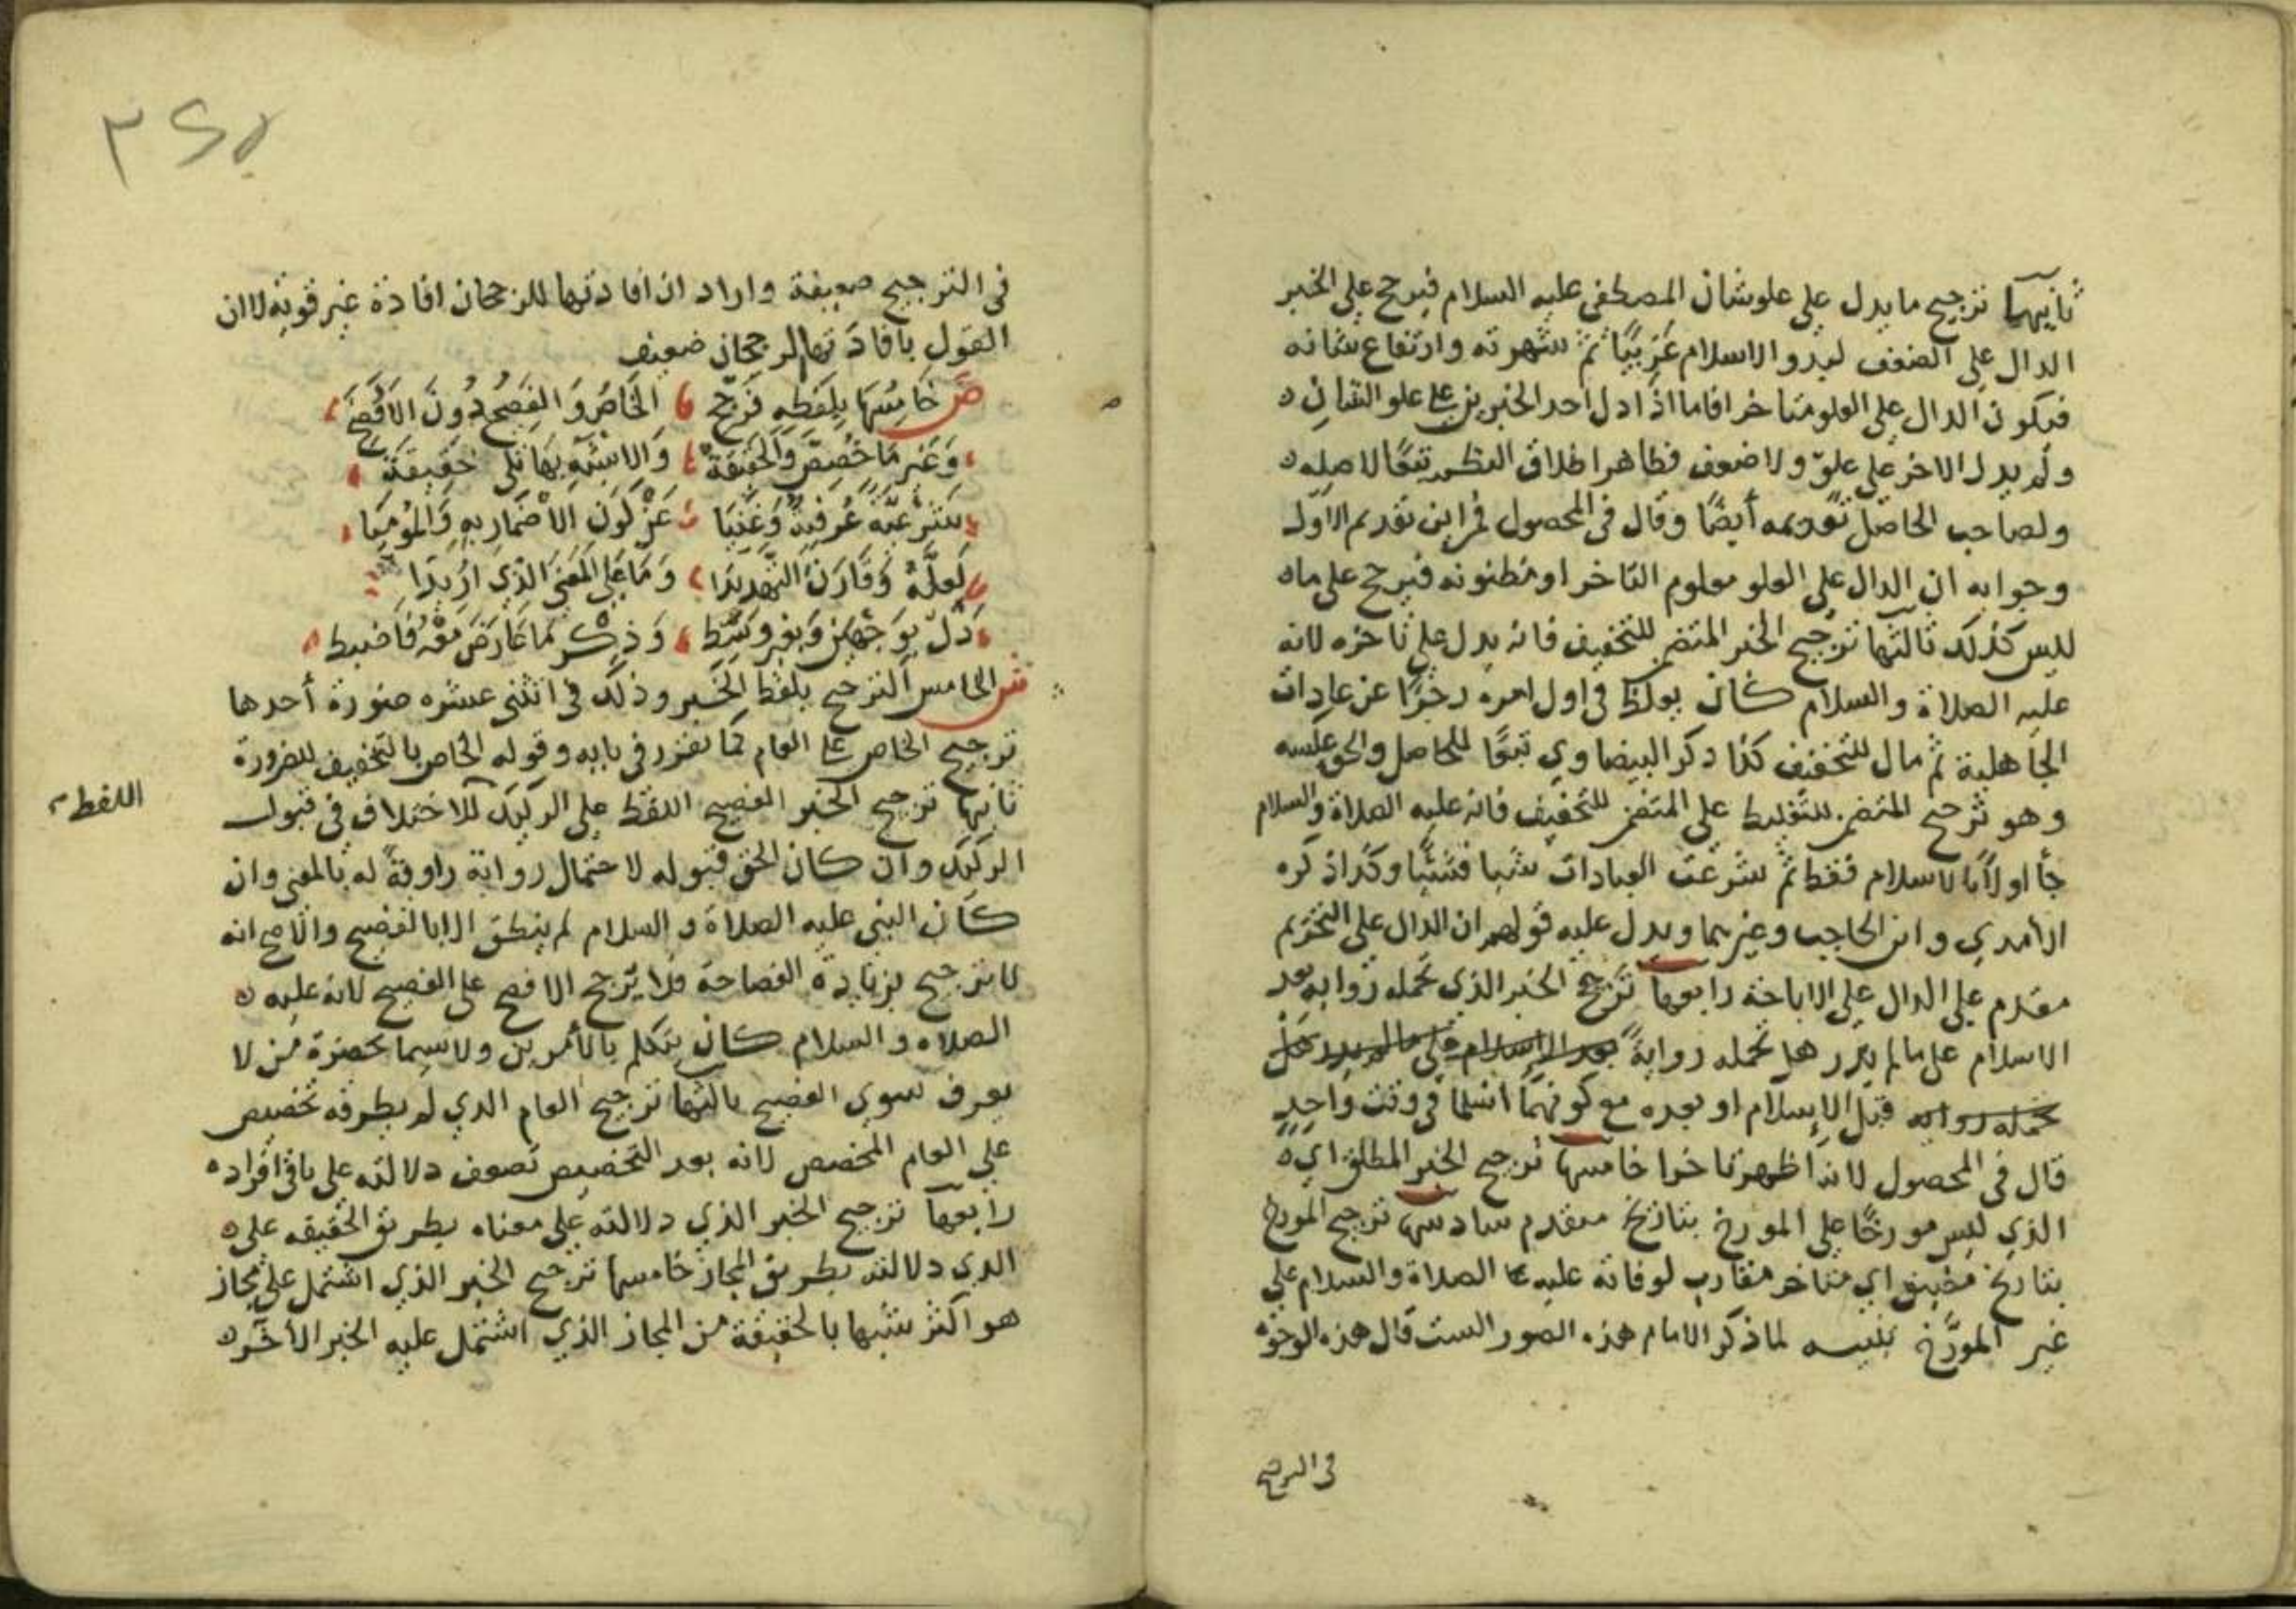 ثانيها ترجيح ما يدل علي علو شان المصطفى عليه السلام فيرجح علي الخبر
الدال علي الضعف لبدو الاسلام غريبًا ثم شهرته وارتفاع شانه
فيكون الدال علي العلو متاخرا فاما اذا دل احد الخبرين علي علو الشان
ولم يدل الاخر علي علوّ ولا ضعف فظاهر اطلاق النظم تبعًا لاصله
ولصاحب الحاصل تقديمه أيضًا وقال في المحصول في اين تقديم الاول
وجوابه ان الدال علي العلو معلوم التاخر او مظنونه فيرجح علي ما
ليس كذلك ثالثها ترجيح الخبر المتضمن للتخفيف فانه يدل علي تاخره لانه
عليه الصلاة والسلام كان يغلظ في اول امره زجرًا عن عادات
الجاهلية ثم مال للتخفيف كذا ذكر البيضاوي تبعًا للحاصل والحق عكسه
وهو ترجيح المتضمن للتغليظ علي المتضمن للتخفيف فانه عليه الصلاة والسلام
جأ اولاً بالاسلام فقط ثم شرعت العبادات شيا فشيئًا وكذا ذكره
الآمدي وابن الحاجب وغيرهما ويدل عليه قولهم ان الدال علي التحريم
مقدم علي الدال علي الاباحة رابعها ترجيح الخبر الذي تحمله راويه بعد
الاسلام علي ما لم يدر هل تحمله روايةً بعد الاسلام علي ما لم يدر هل
تحمله روايه قبل الإسلام او بعده مع كونهما اسلما في وقت واحدٍ
قال في المحصول لانه اظهر تاخرا خامسها ترجيح الخبر المطلق اي
الذي ليس مورخًا علي المورخ بتاريخ متقدم سادسها ترجيح المورخ
بتاريخ مضيق اي متاخر مقارب لوفاته عليه الصلاة والسلام علي
غير المورّخ تنبيه لما ذكر الامام هذه الصور الست قال هذه الوجوه
في الترجيح
في الترجيح ضعيفة واراد ان افادتها للرجحان افادة غير قوية لا ان
القول بافادتها الرجحان ضعيف
ص خَامِسُهَا بِلَفظِهِ فَرَجّحِ الخَاصُ وَالفَصِيحُ دُونَ الاَفْصَحِ
وَغَيرِ مَا خُصِّصَ وَالحَقِيقَةْ وَالاشْبَهِ بِهَا تلي حَقِيقَة
شَرْعِيَّةً عُرْفِيةً وَغَنِيَا عَنْ كَونِ الاضْمَارِ بِهِ وَالمُومِيَا
لِعلَّةٍ وَقَارَنَ التَّهديدَا وَمَا عَلي المَعْنَي الَّذي اُرِيدَا
دَلّ بِوَجْهَينِ وَبغيرِ وَسَطِ وَذِكْرِ مَا عَارَضَ مَعْهُ فَاضْبطِ
ش الخامس الترجيح بلفظ الخبر وذلك في اثنتي عشره صورة أحدها
ترجيح الخاص علي العام كما تقرر في بابه وقوله الخاص بالتخفيف للضرورة
ثانيها ترجيح الخبر الفصيح اللفظ علي الركيك للاختلاف في قبول
اللفظ
الركيك وان كان الحق قبوله لاحتمال رواية راويه له بالمعني وان
كان النبي عليه الصلاة والسلام لم ينطق الا بالفصيح والاصح انه
لا ترجيح بزيادة الفصاحة فلا يرجح الافصح علي الفصيح لانه عليه
الصلاه والسلام كان يتكلم بالأمرين ولا سيما بحضرة من لا
يعرف سوي الفصيح ثالثها ترجيح العام الذي لم يطرقه تخصيص
علي العام المخصص لانه بعد التخصيص تضعف دلالته علي باقي افراده
رابعها ترجيح الخبر الذي دلالته علي معناه بطريق الحقيقه علي
الذي دلالته بطريق المجاز خامسها ترجيح الخبر الذي اشتمل علي مجاز
هو اكثر شبها بالحقيقة من المجاز الذي اشتمل عليه الخبر الأخر